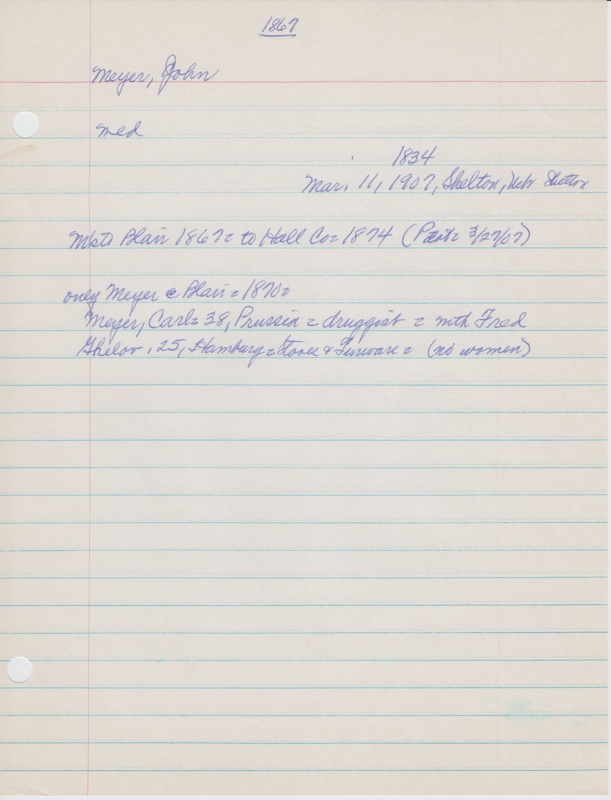 1867
Meyer, John
med
1834
Mar. 11, 1907, Shelton, Nebr
Blair 1867= to Hall Co= 1874 ( 3/27/07)
only Meyer @ Blair = 1870=
Meyer, Carl= 38, Prussia = druggist = with Fred
, 25, Hamburg= Stoves & Tinware= (no women)